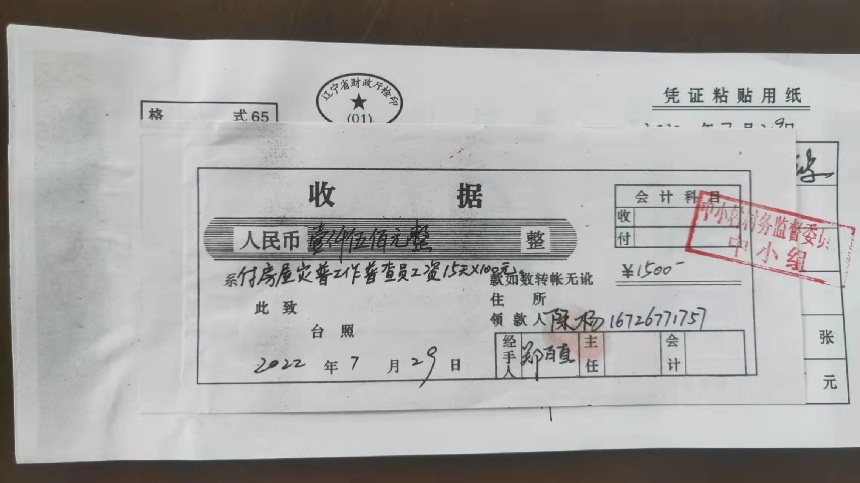 辽宁省财政厅检印
(01)
凭证粘贴用纸
格 式65
收 据
会计科目
收
付
人民币壹仟伍佰元整 整
中小村村务监督委员
中小组
系付房屋灾普工作普查员工资15天×100元
款如数转帐无讹
¥1500-
此致
住所
台照
领款人 陈杨 16726771757
2022年7月29日
经手人 郑百直 主任 会计
张
元